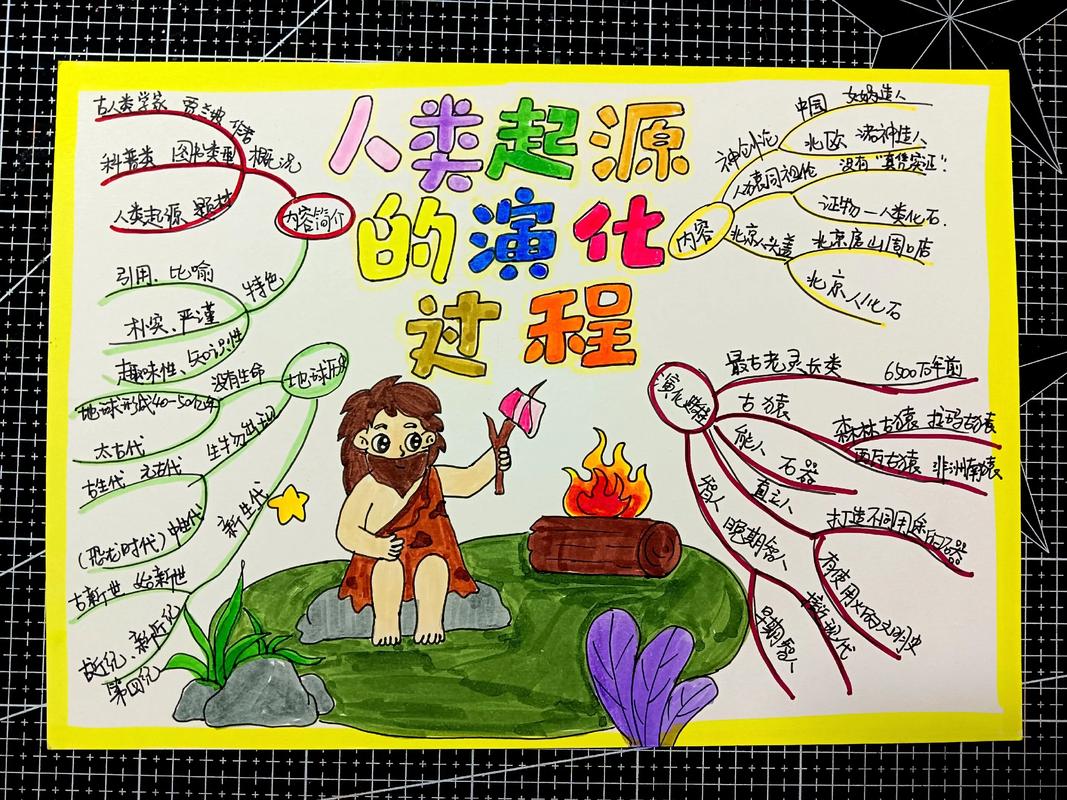 人类起源
的演化
过程
古人类学家 贾兰坡 作者
科普类 图书类型 概况
人类起源 题材
内容简介
引用、比喻 特色
朴实、严谨
趣味性、知识性
地球历史
没有生命
地球形成40-50亿年
太古代
生物出现
古生代 元古代
(恐龙时代)中生代
新生代
古新世 始新世
新近纪
第四纪
内容
神创论
中国 女娲造人
北欧 诸神造人
人猿同祖论
没有"真凭实证"!
证物—人类化石.
北京人头盖
北京房山周口店
北京人化石
演化
最古老灵长类 6500万年前
古猿
森林古猿 拉玛古猿
西瓦古猿 非洲南猿
能人 石器
直立人
打造不同用途石器
有使用火的文明史
智人
晚期智人
早期智人